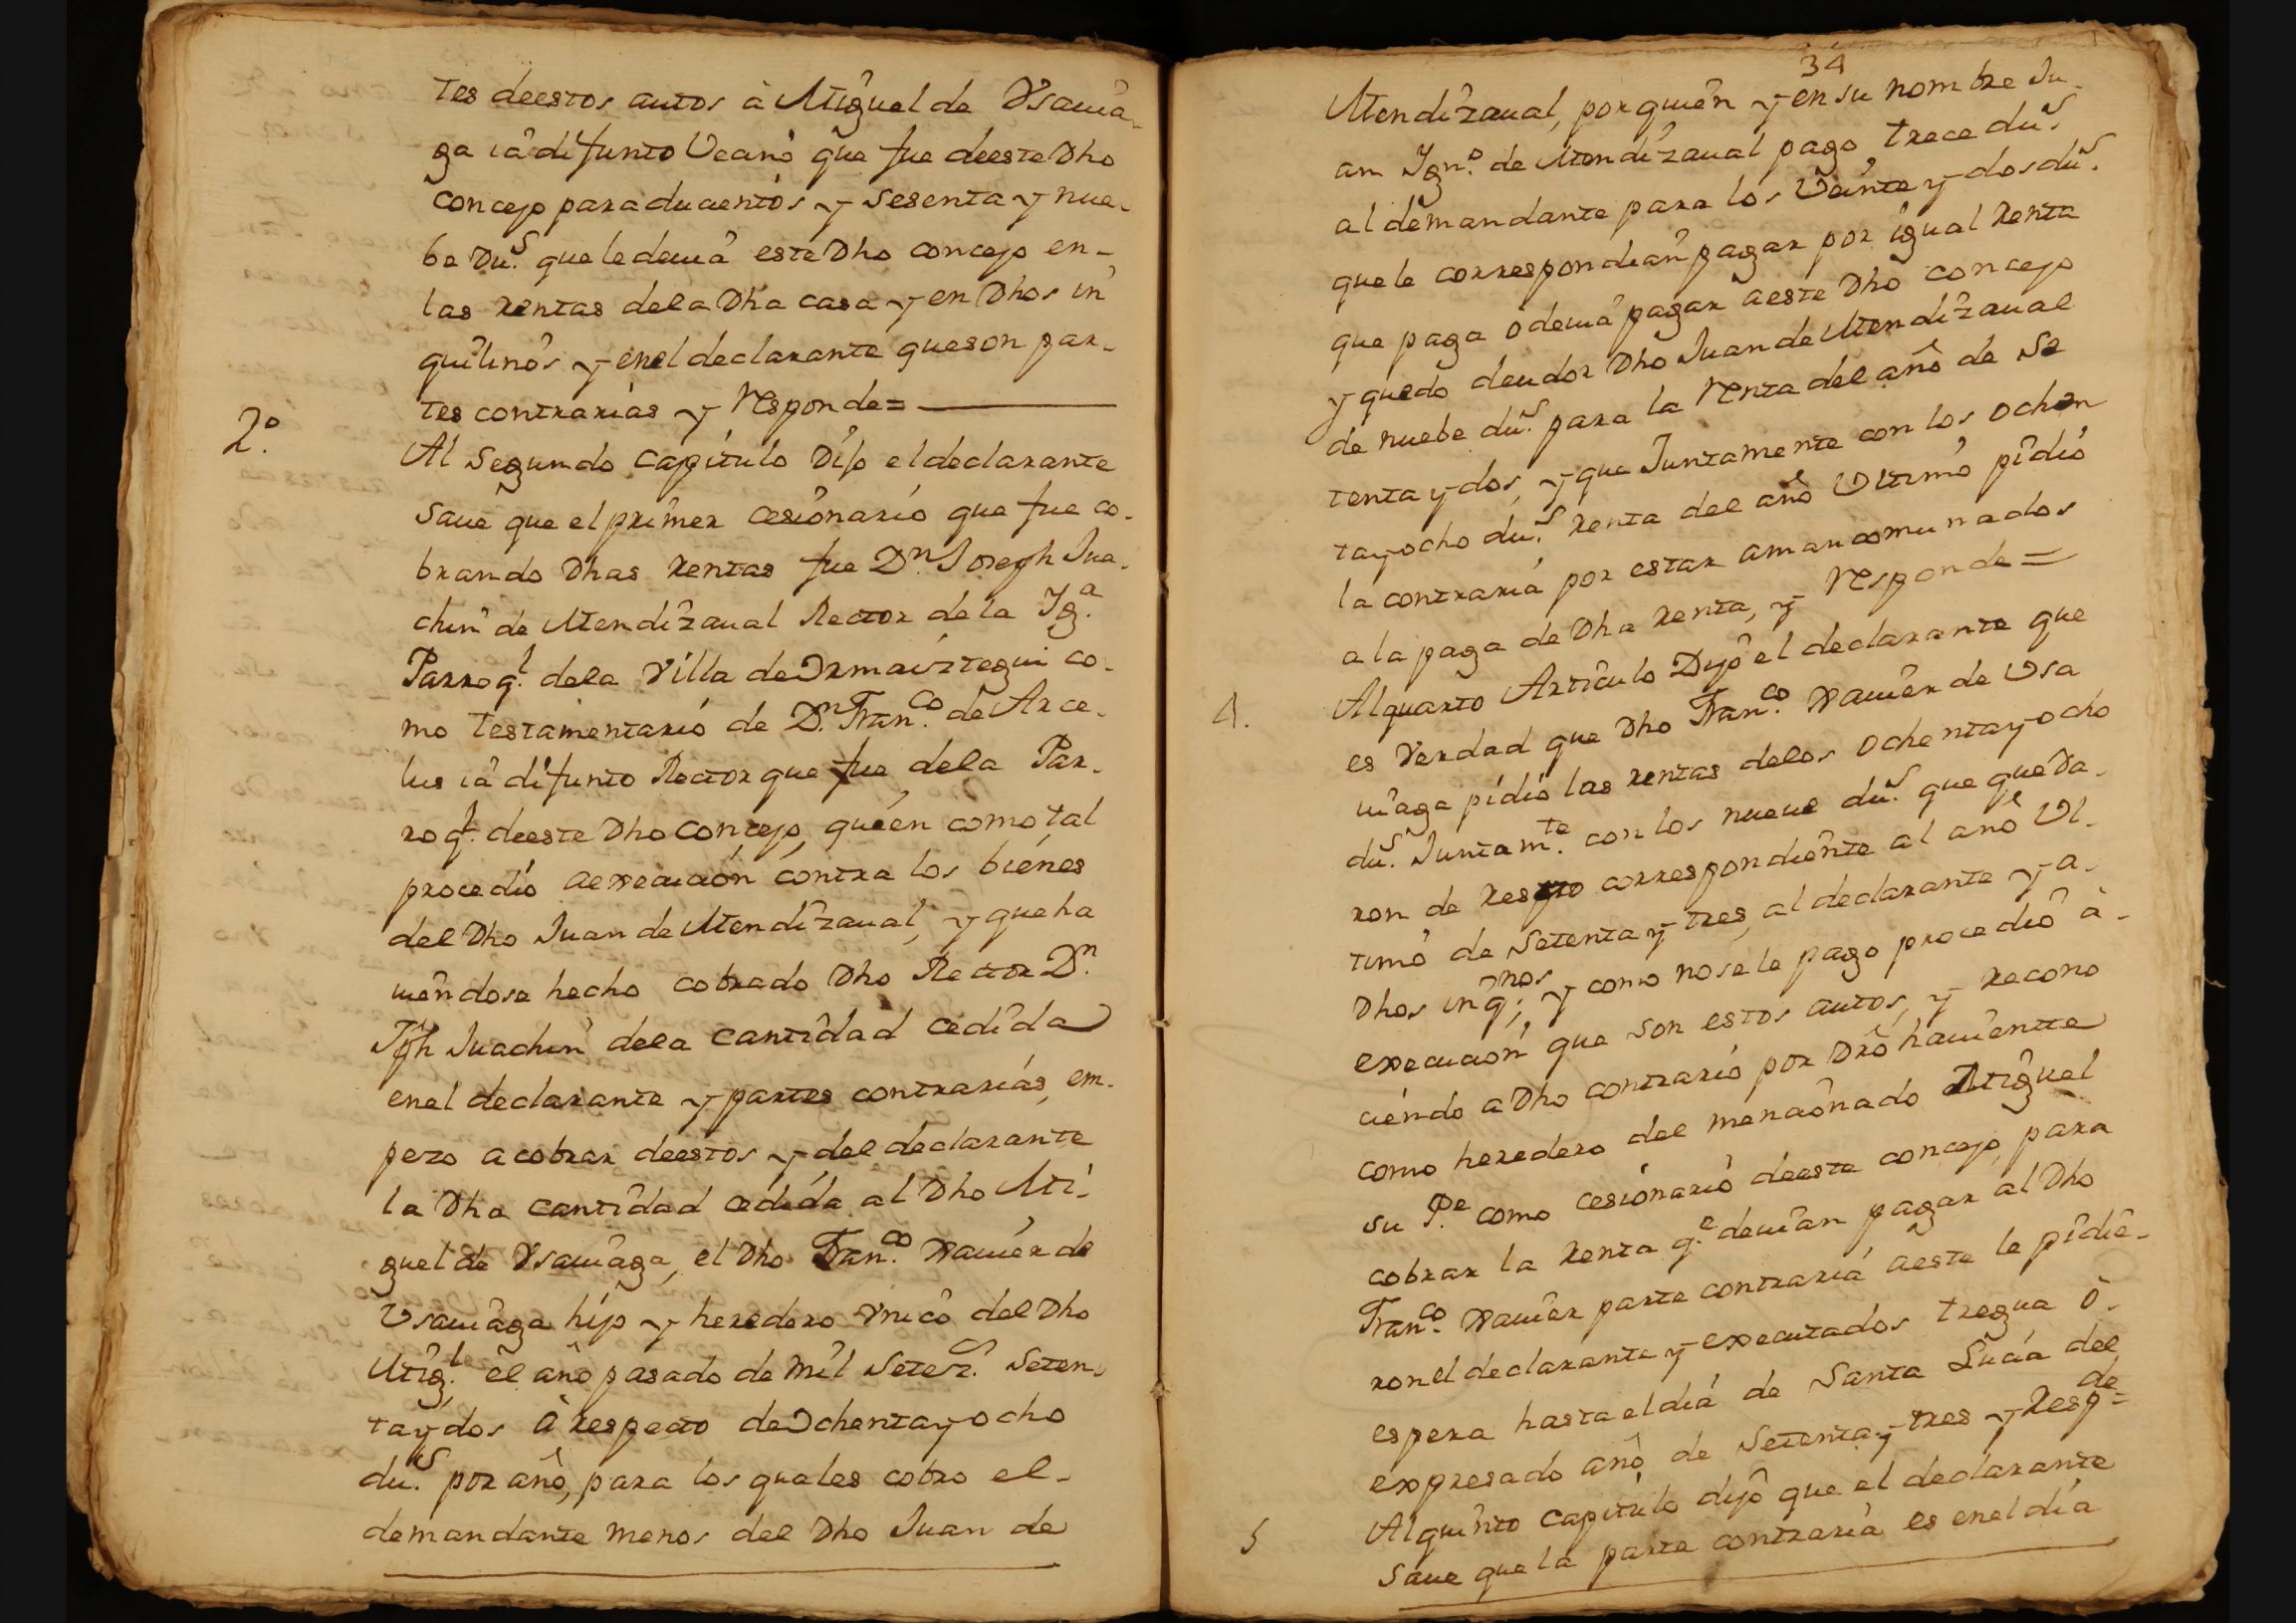 tes deestos autos à Miguel de Vsauia-
ga ià difunto Vecino que fue deeste Dho
concejo para ducientos y sesenta y nue-
be Du.s que le deuia este Dho concejo en-
las rentas dela Dha casa y en Dhos in
quilinos y enel declarante queson par-
tes contrarias y responde=
2.o
Al Segundo capitulo Dijo el declarante
Saue que el primer cesionario que fue co-
brando Dhas rentas fue D.n Joseph Jua-
chin de Mendizaual Rector de la Yg.a
Parroq.l dela Villa de Ormaiztegui co-
mo testamentario de D.n Fran.co de Arce-
lus ià difunto Rector que fue dela Par-
roq.l deeste Dho concejo, quien como tal
procedio aexecucion contra los bienes
del Dho Juan de Mendizaual, y que ha
uiendose hecho cobrado Dho Rector D.n
Jph Juachin dela cantidad cedida
enel declarante y partes contrarias, em-
pezo acobrar deestos y del declarante
la Dha cantidad cedida al Dho Mi-
guel de Vsauiaga, el Dho Fran.co Xauier de
Vsauiaga hijo y heredero vnico del Dho
Mig.l el año pasado de mil Setez.s Seten-
taydos à respecto de Ochentayocho
du.s por año, para los quales cobro el-
demandante menos del Dho Juan de
34
Mendizaual, por quien y en su nombre Ju-
an Ygn.o de Mendizaual pago trece du.s
al demandante para los Veinte y dos du.s
que le correspondian pagar por igual renta
que paga ó deuia pagar aeste Dho concejo
y quedo deudor Dho Juan de Mendizaual
de nuebe du.s para la renta del año de Se
tenta y dos, y que Juntamente con los ochen
tayocho du.s renta del año Vltimo pidio
la contraria por estar amancomunados
a la paga de Dha renta, y responde=
4.
Alquarto Articulo Dijo el declarante que
es Verdad que Dho Fran.co Xauier de Vsa
uiaga pidio las rentas delos Ochentayocho
du.s Juntam.te con los nueue du.s que queda-
ron de resto correspondiente al año Vl-
timo de Setenta y tres, al declarante y a-
Dhos inq.nos, y como nosele pago procedio à-
execucion que son estos autos, y recono
ciendo a Dho contrario por Dro hauiente
como heredero del mencionado Miguel
su P.e como cesionario deeste concejo, para
cobrar la renta q.e deuian pagar al Dho
Fran.co Xauier parte contraria aeste le pidie-
ron el declarante y executados tregua ò-
espera hasta el dia de Santa Lucia del
expresado año de Setenta y tres y Resp.de=
5
Alquinto capitulo dijo que el declarante
Saue que la parte contraria es enel dia